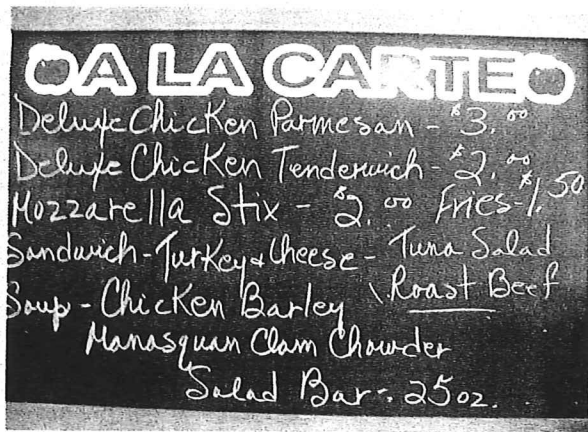 A LA CARTE
Deluxe Chicken Parmesan - $3.00
Deluxe Chicken Tenderwich - $2.00
Mozzarella Stix - $2.00 Fries - $1.50
Sandwich - Turkey & Cheese - Tuna Salad
\ Roast Beef
Soup - Chicken Barley
Manasquan Clam Chowder
Salad Bar - .25 oz.